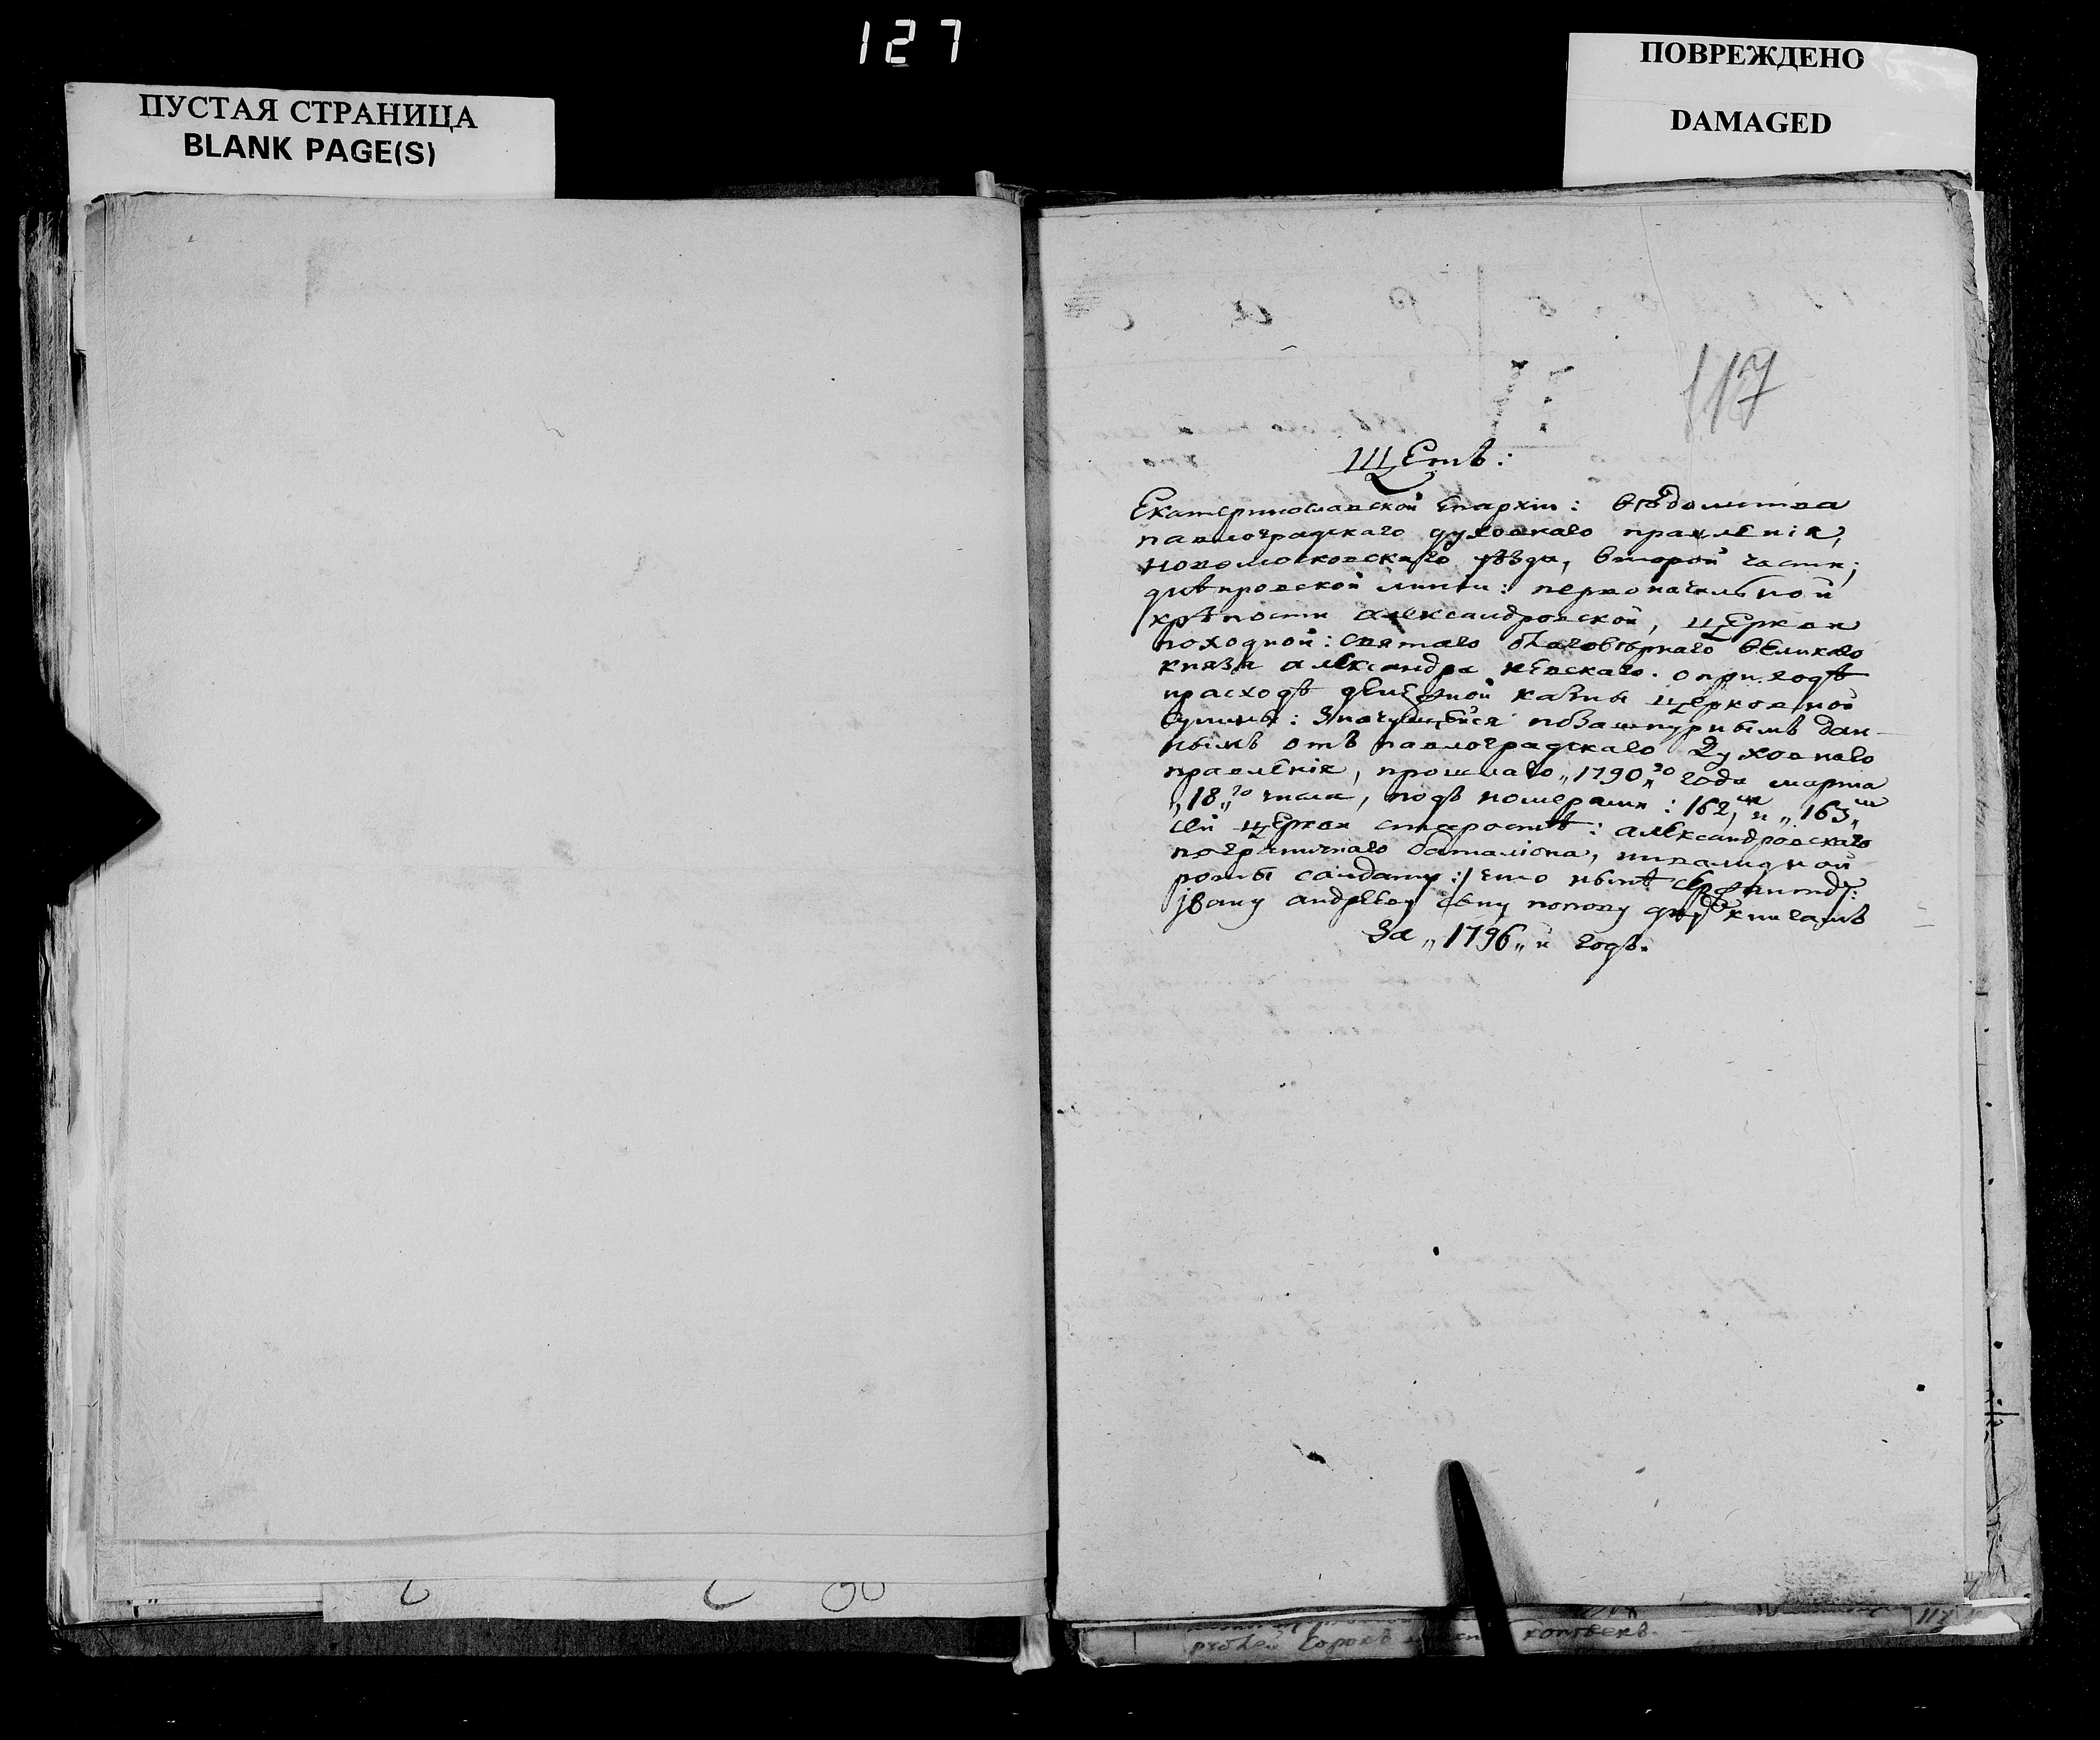 127
ПУСТАЯ СТРАНИЦА
BLANK PAGE(S)
ПОВРЕЖДЕНО
DAMAGED
117
Щетъ:
Екатеринославской Епархіи: вѣдомства
павлоградскаго духовнаго правленія,
новомосковскаго уѣзда, второй части;
днѣпровской линіи: первоначальной
крѣпости александровской, церкви
походной: святаго благовѣрнаго великаго
князя александра невскаго. о приходѣ
ирасходѣ денежной казны церковной
суммы: значущейся по зашнурнымъ дан-
нымъ отъ павлоградскаго Духовнаго
правленія, прошлаго „1790„го года марта
„18„го числа, подъ номерами: 162,мъ и „163„мъ
сей церкви старостѣ: александровскаго
пограничнаго баталіона, инвалидной
роты салдату :/ что нынѣ
јвану андрѣеву сыну попову двумъ книгамъ
За „1796„й годъ.
рублей сорокъ копѣекъ.
117